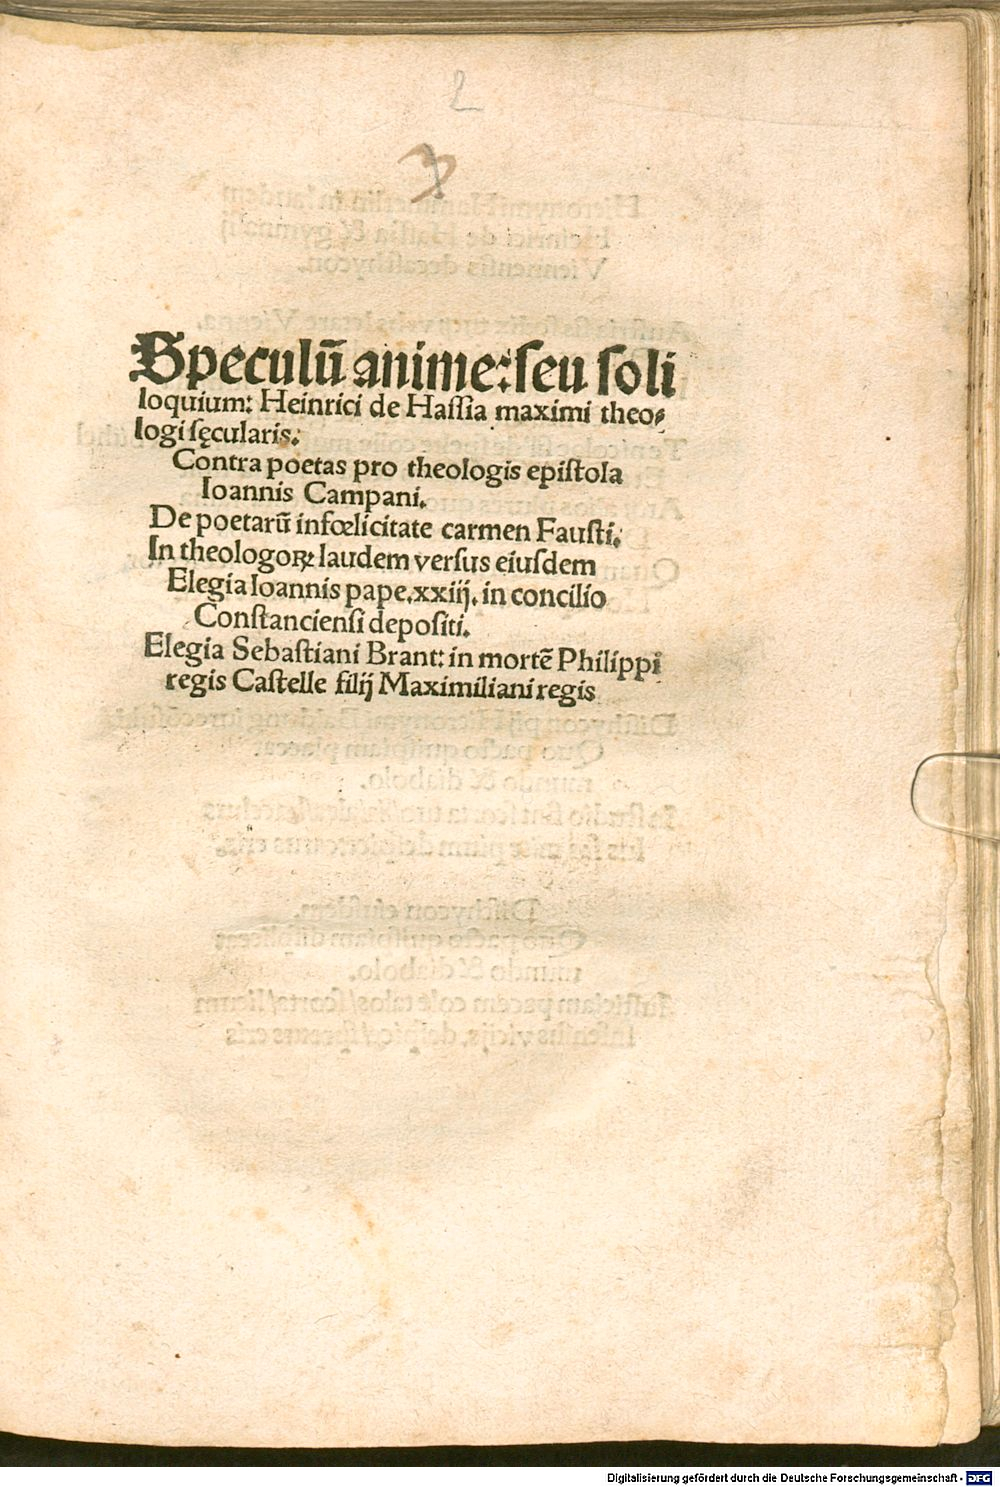 2
Speculū anime: seu soli
loquium: Heinrici de Hassia maximi theo-
logi sęcularis.
Contra poetas pro theologis epistola
Ioannis Campani.
De poetarū infœlicitate carmen Fausti.
In theologoꝝ laudem versus eiusdem
Elegia Ioannis pape.xxiij. in concilio
Constanciensi depositi.
Elegia Sebastiani Brant: in mortē Philippi
regis Castelle filij Maximiliani regis
Digitalisierung gefördert durch die Deutsche Forschungsgemeinschaft - DFG